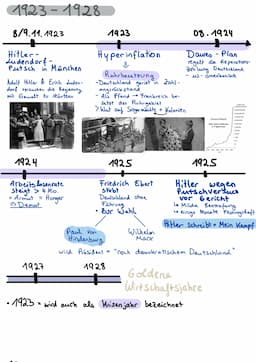 1923 - 1928
8/9.11.1923
1923
08.1924
Hitler-
Ludendorf-
Putsch in München
Adolf Hitler & Erich Luden-
dorf versuchen die Regierung
mit Gewalt zu stürzen
Hyperinflation
Ruhrbesetzung
- Deutschland gerät in Zahl-
ungsrückstand
- Als Pfand → Frankreich be-
setzt das Ruhrgebiet
Dawes - Plan
regelt die Reparations-
zahlung Deutschland
US-Amerikanisch
1924
1925
1925
Arbeitslosenrate
steigt > 4 Mio.
= Armut = Hunger
= Demut
Friedrich Ebert
stirbt
Deutschland ohne
Führung
- Zur Wahl
Paul von
Hindenburg
Wilhelm
Marx
wird Präsident = "noch demokratischen Deutschland"
Hitler wegen
Putschversuch
vor Gericht
↳ Milde Bestrafung
↳ einige Monate Festungshaft
Hitler Schreibt = Mein Kampf
1927
1928
Goldene
Wirtschaftsjahre
• 1923 = wird auch als Krisenjahr bezeichnet